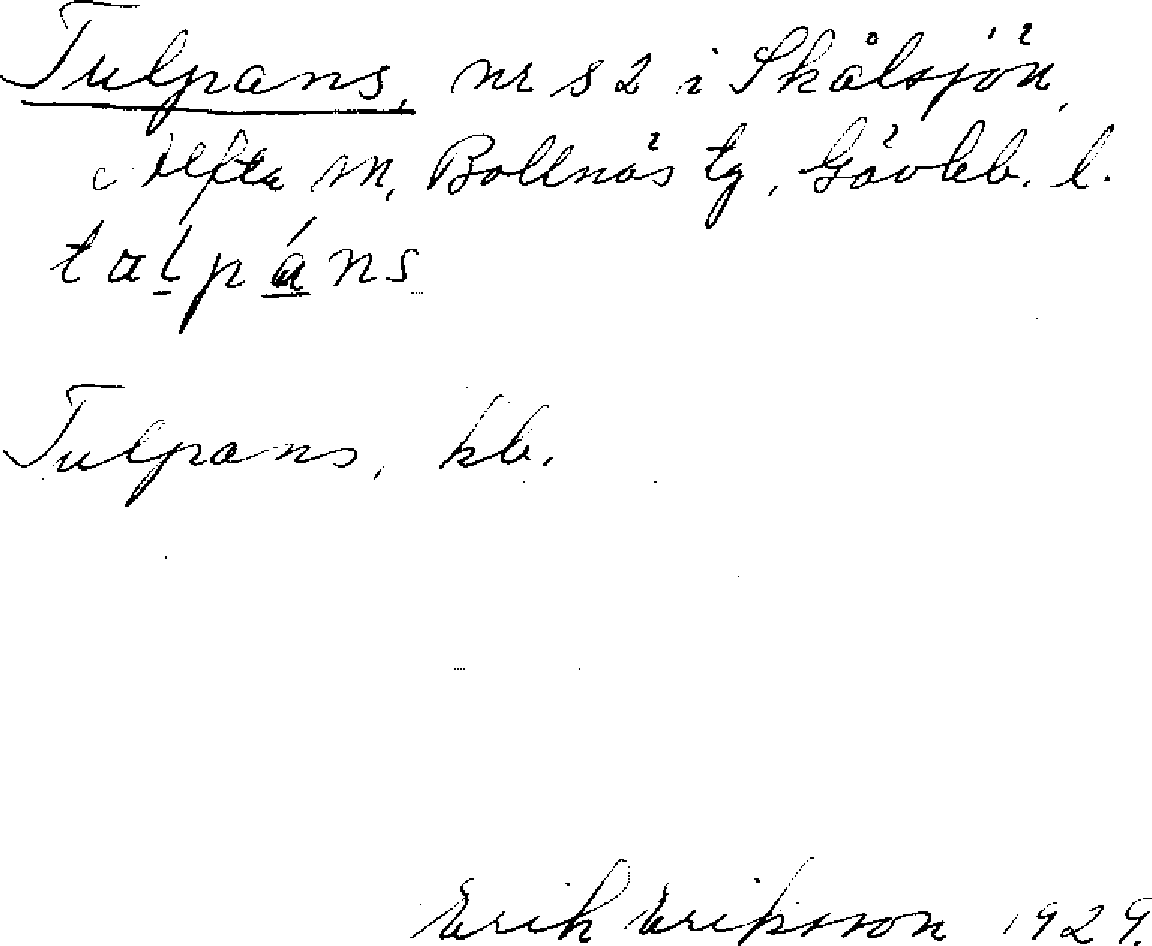 Tulpans, nr s 2 i Skålsjön,
Alfta sn, Bollnäs tg, Gävleb. l.
talpáns
Tulpans, kb.
Erik Eriksson 1929.